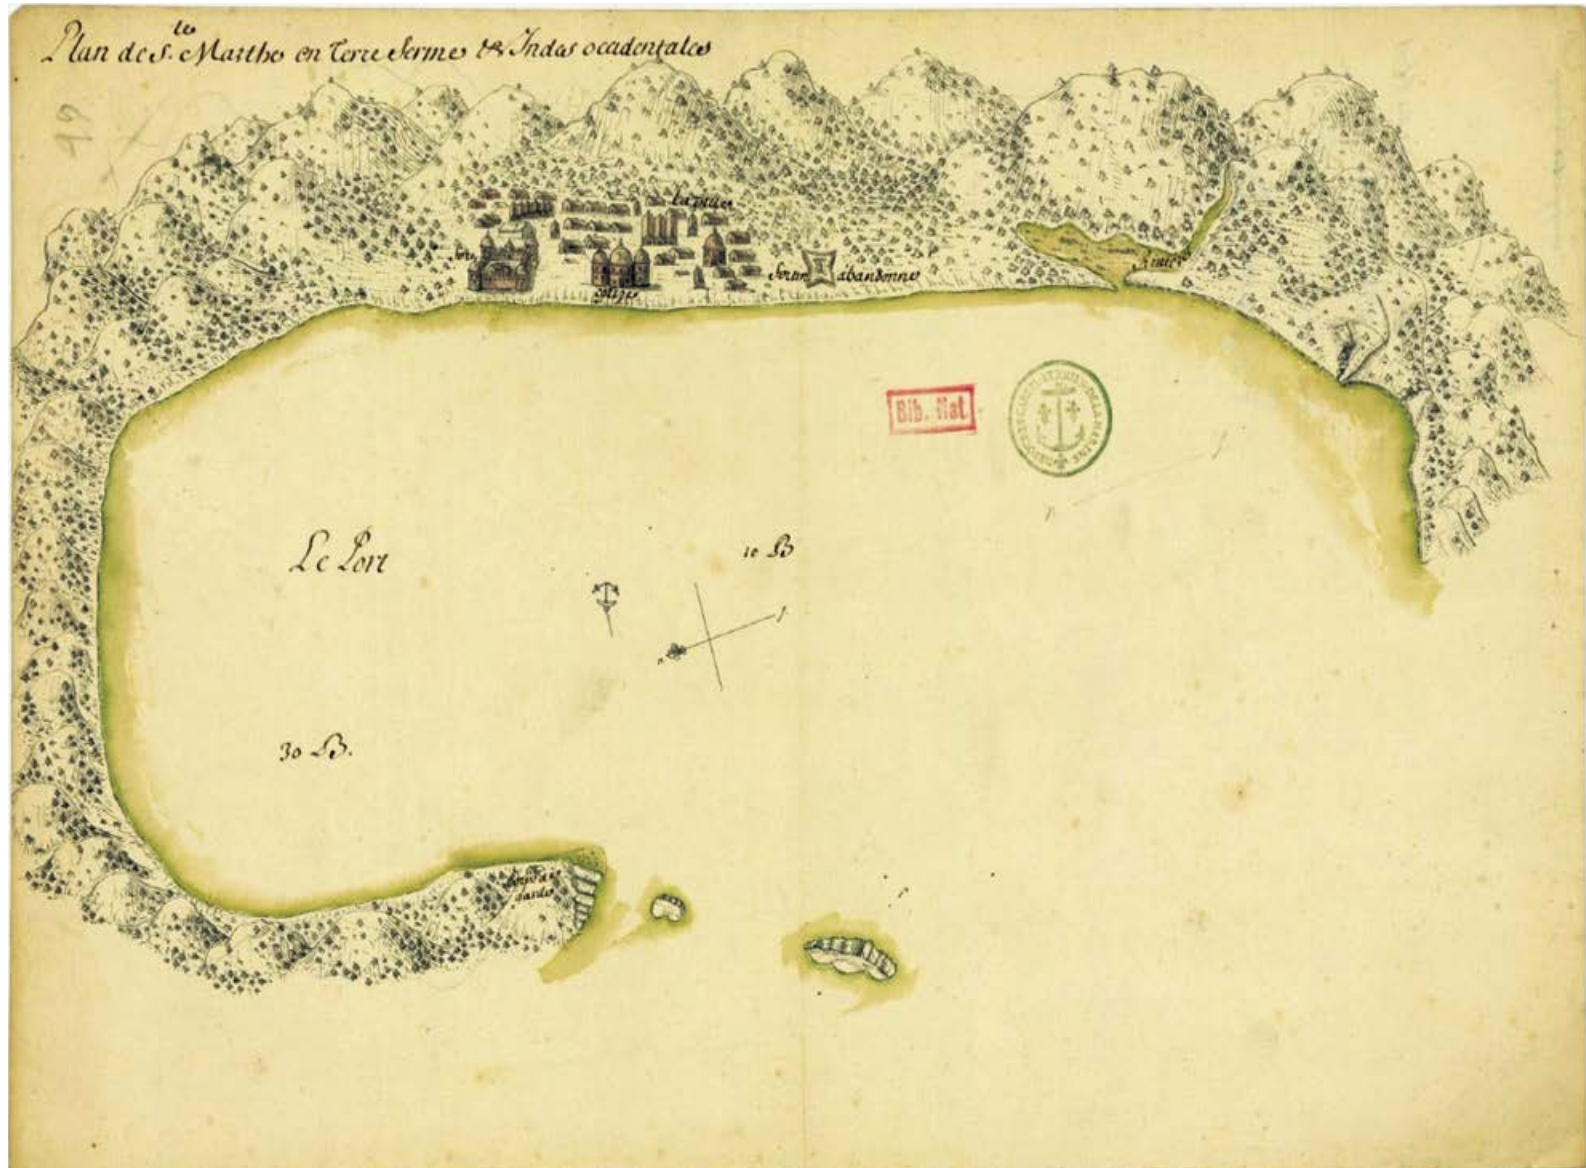 Plan de S.te Marthe en Terre ferme des Indes occidentales
49
La ville
fort
Eglise
fortin abandonné
Riviere
Bib. Nat.
Le Port
10 B
30 B.
garde